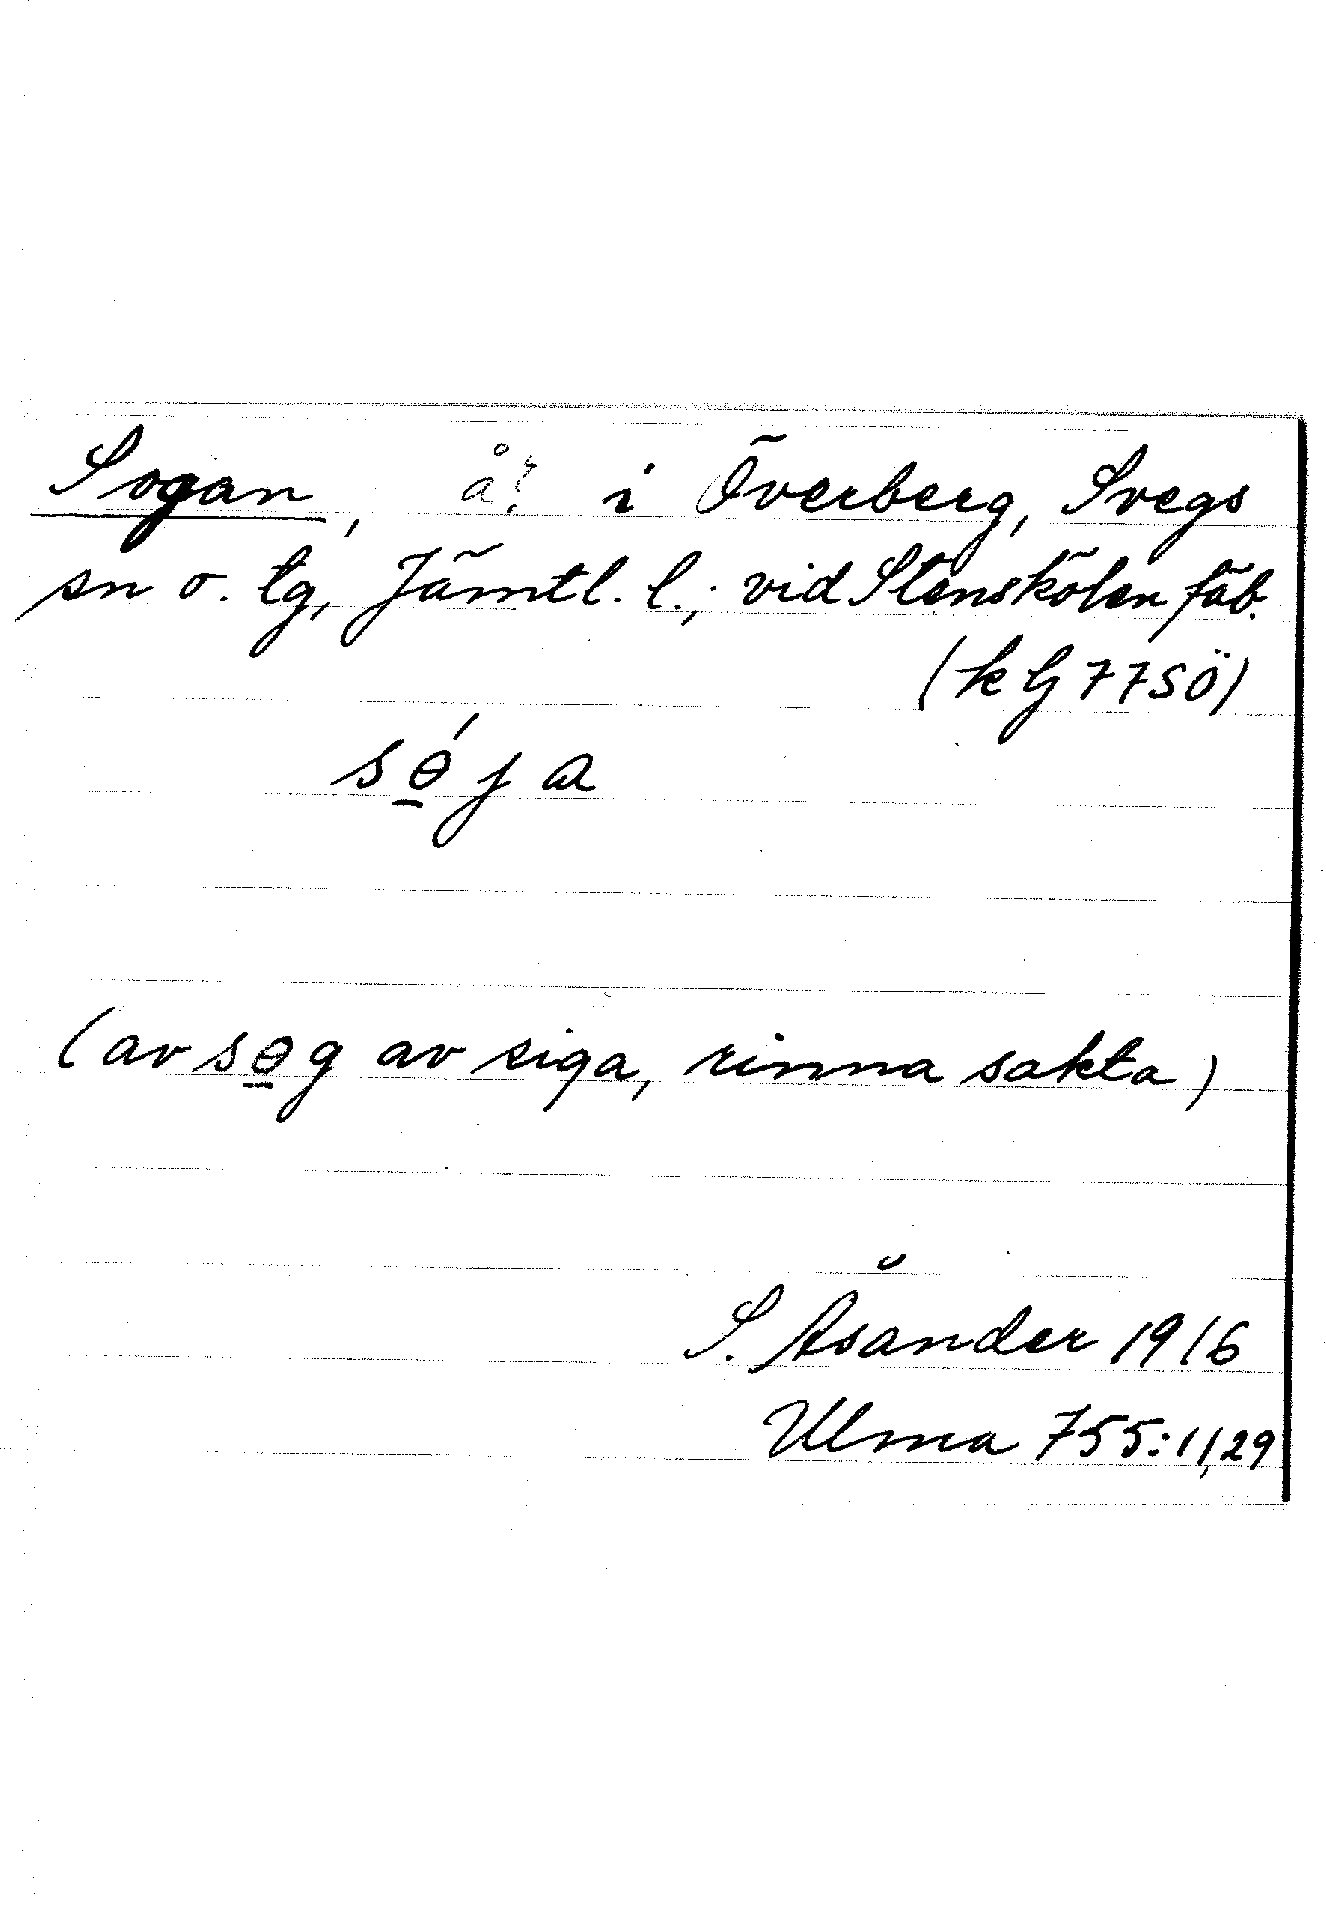 Sogan, å? i Överberg, Svegs
sn o. tg, Jämtl. l.; vid Stenskölen fäb.
(kG 77SÖ)
sɵ̱́ja
(av sɵ̱g av siga, rinna sakta)
S. Åsander 1916
Ulma 755:11,29